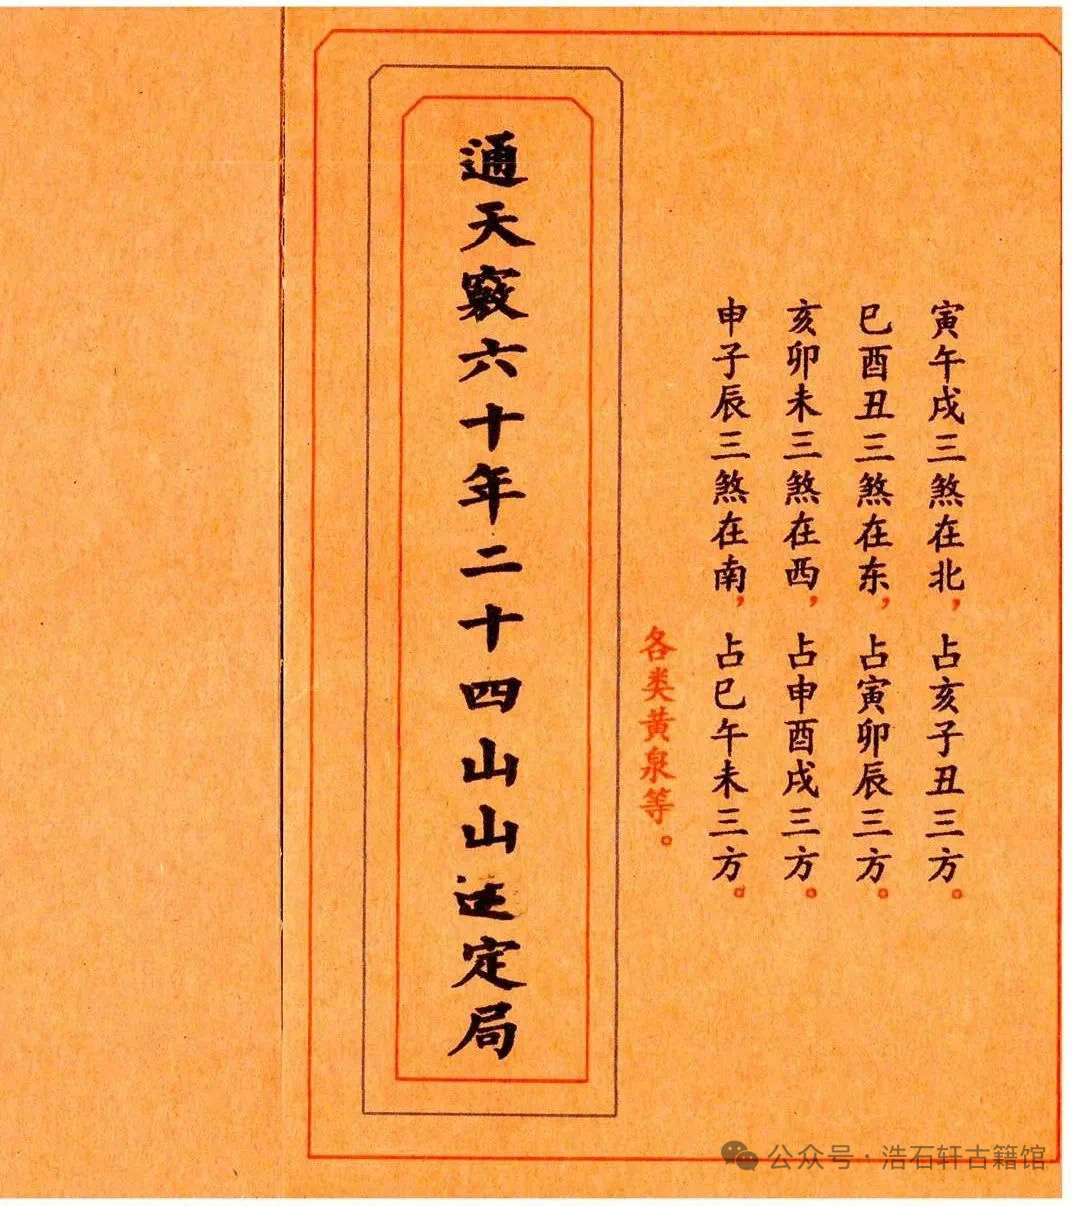 寅午戌三煞在北，占亥子丑三方。
巳酉丑三煞在东，占寅卯辰三方。
亥卯未三煞在西，占申酉戌三方。
申子辰三煞在南，占巳午未三方。
各类黄泉等。
通天竅六十年二十四山山定局
公众号·浩石轩古籍馆